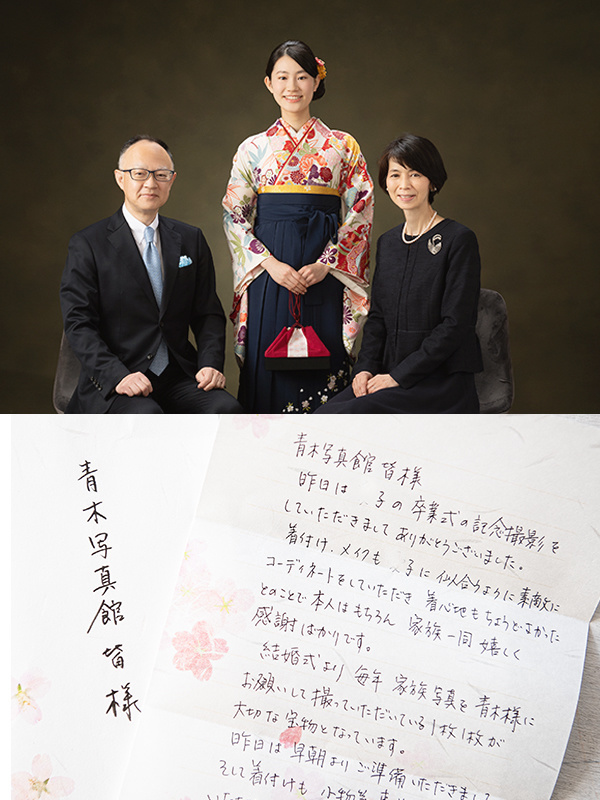 青木写真館 皆様
青木写真館 皆様
昨日は 子の卒業式の記念撮影を
していただきまして ありがとうございました。
着付け、メイクも 子に似合うように素敵に
コーディネートをしていただき 着心地もちょうどよかった
とのことで本人はもちろん 家族一同 嬉しく
感謝ばかりです。
結婚式より 毎年 家族写真を 青木様に
お願いして撮っていただいている1枚1枚が
大切な宝物となっています。
昨日は 早朝より ご準備いただきまして
そして着付けも 小物